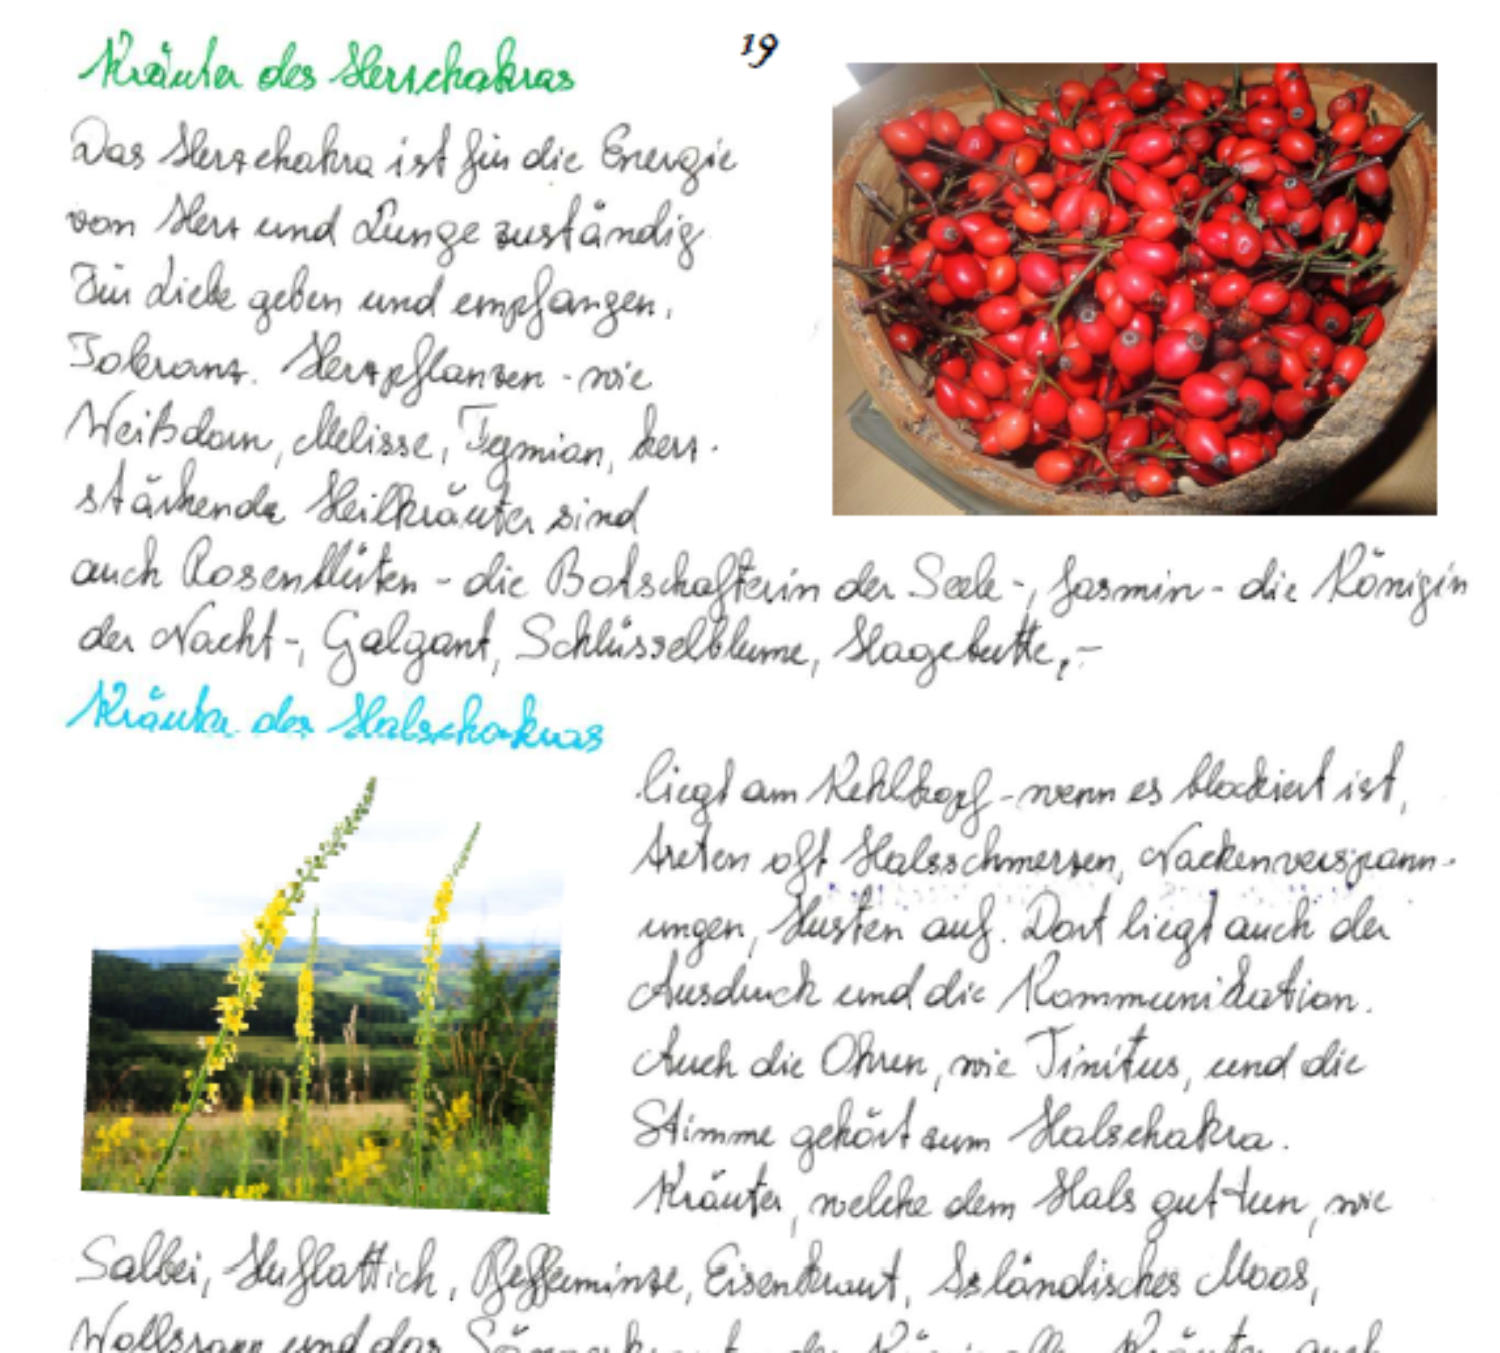 19
Kräuter des Herzchakras
Das Herzchakra ist für die Energie
von Herz und Lunge zuständig.
Für Liebe geben und empfangen,
Toleranz. Herzpflanzen - wie
Weißdorn, Melisse, Tymian, herz-
stärkende Heilkräuter sind
auch Rosenblüten - die Botschafterin der Seele -, Jasmin - die Königin
der Nacht -, Galgant, Schlüsselblume, Hagebutte, -
Kräuter des Halschakras
liegt am Kehlkopf - wenn es blockiert ist,
treten oft Halsschmerzen, Nackenverspann-
ungen, Husten auf. Dort liegt auch der
Ausdruck und die Kommunikation.
Auch die Ohren, wie Tinitus, und die
Stimme gehört zum Halschakra.
Kräuter, welche dem Hals gut tun, wie
Salbei, Huflattich, Pfefferminze, Eisenkraut, Isländisches Moos,
und das Kräuter auch